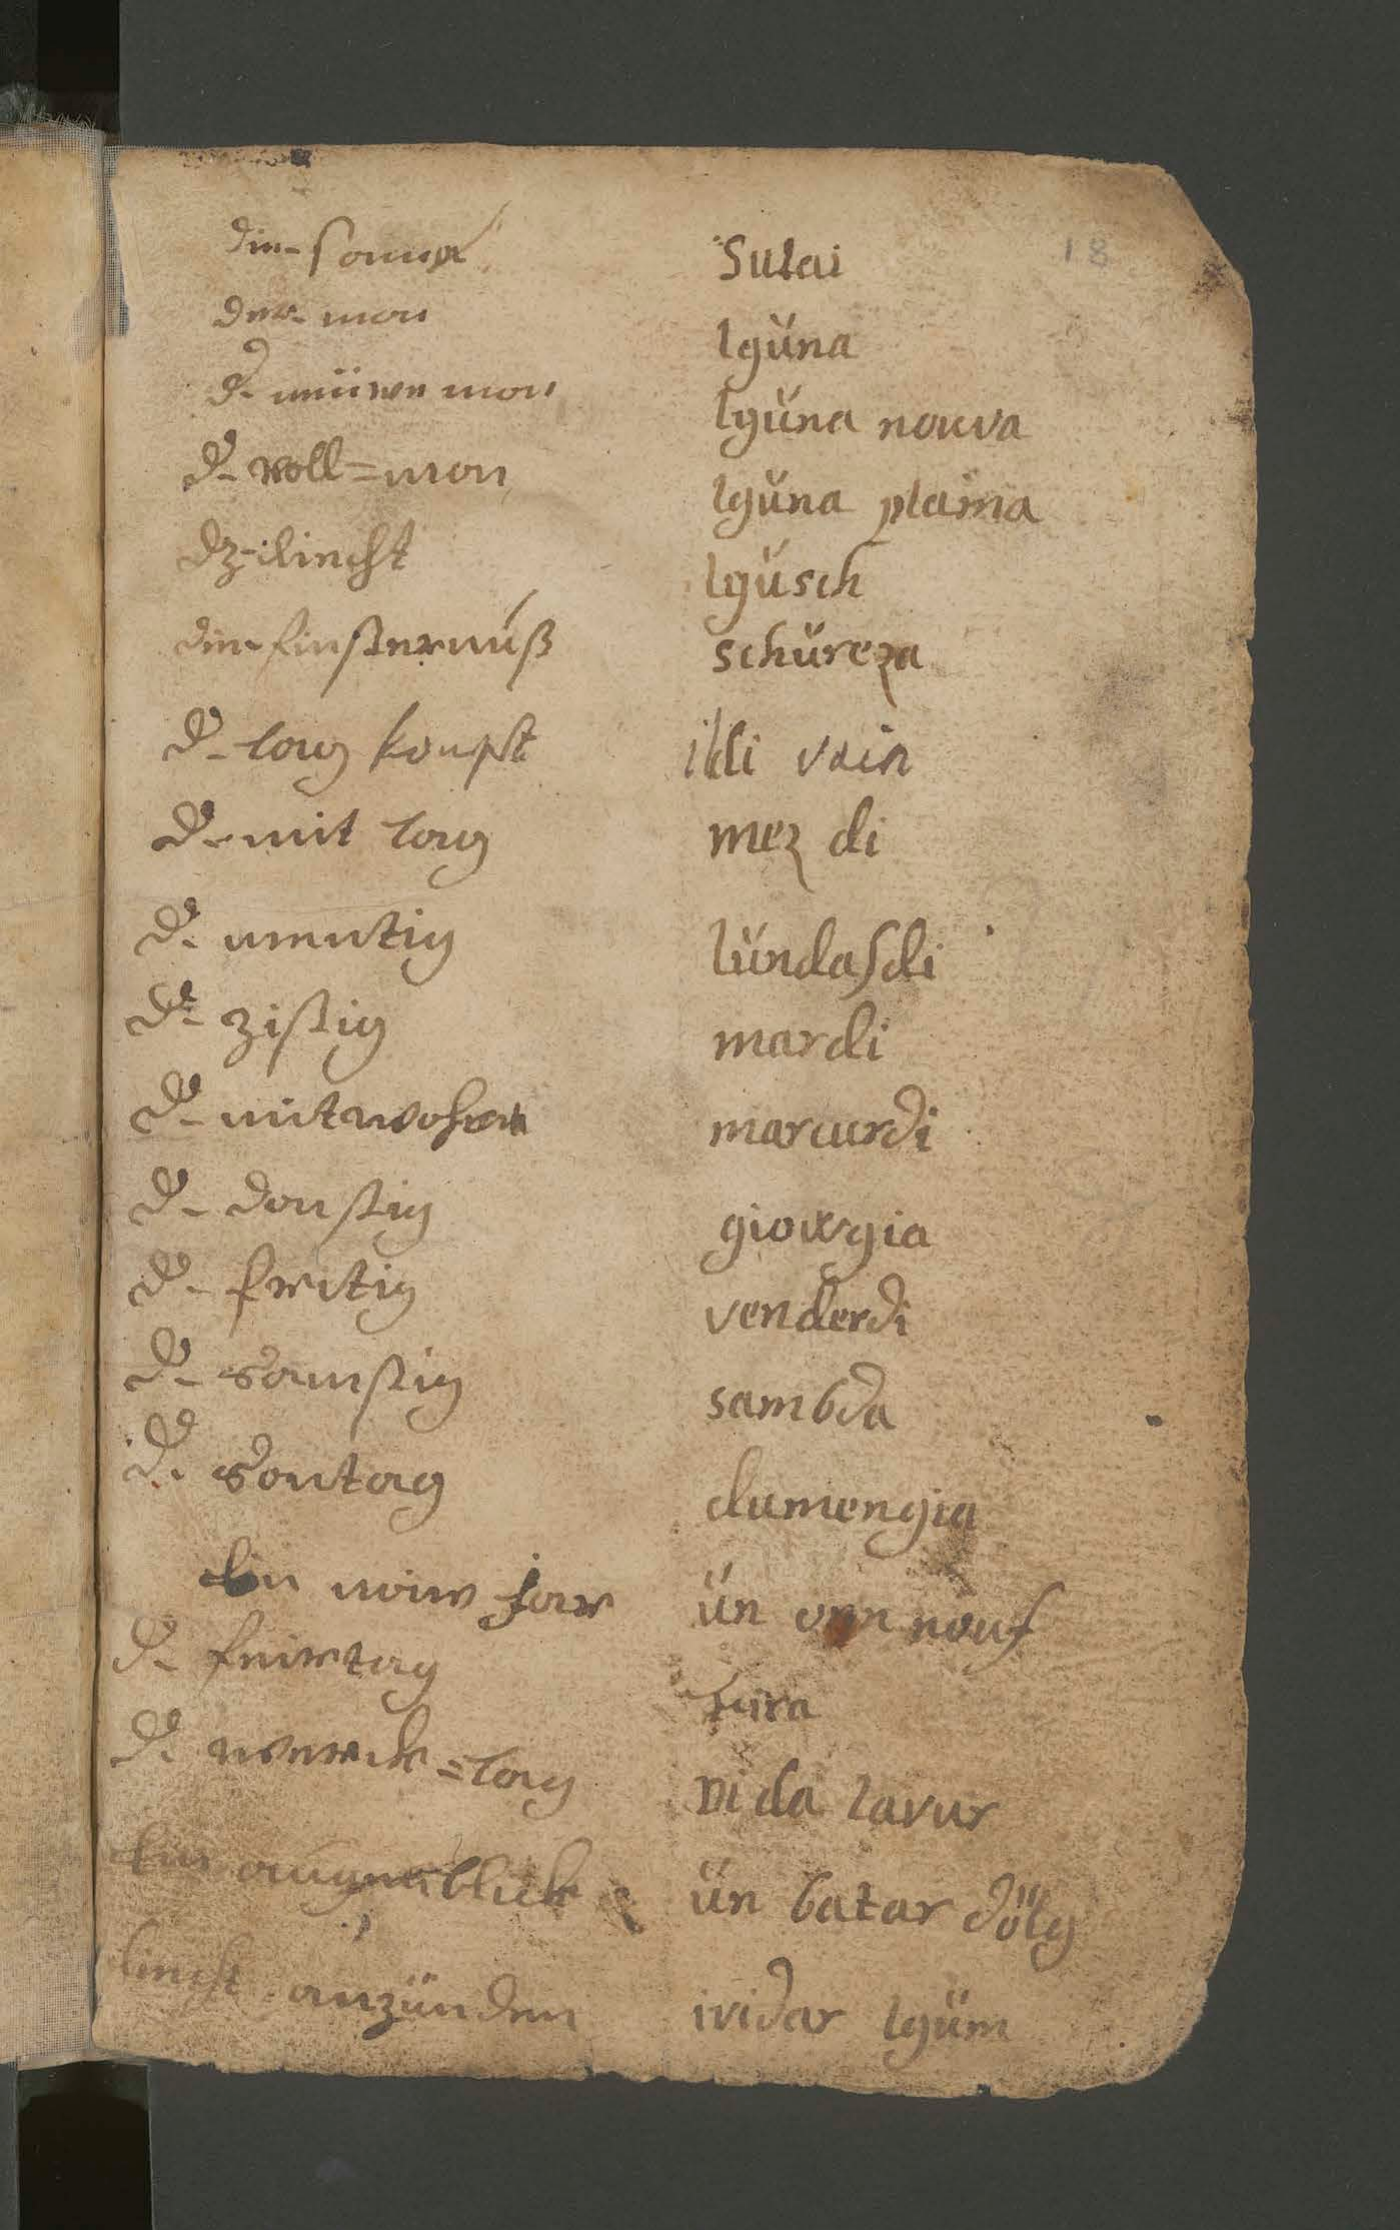 18
die- sonna Sulai
der- mon lgüna
d. nüwe mon lgüna nouva
d- voll=mon lgüna plaina
dz-liecht lgüsch
die finsternuß schüreza
d- tag kompt ildi vain
d- mit tag mez di
d. mentig lündasdi
d- zistig mardi
d- mitwohen marcurdi
d- donstig giovgia
d- fritig venderdi
d- samstig sambda
d. sontag dumengia
Ein nüw Jar ün onn nouf
d- feirtag fira
d. werck=tag di da lavur
Ein augenblick ün batar dölg
liecht anzünden ividar lgüm